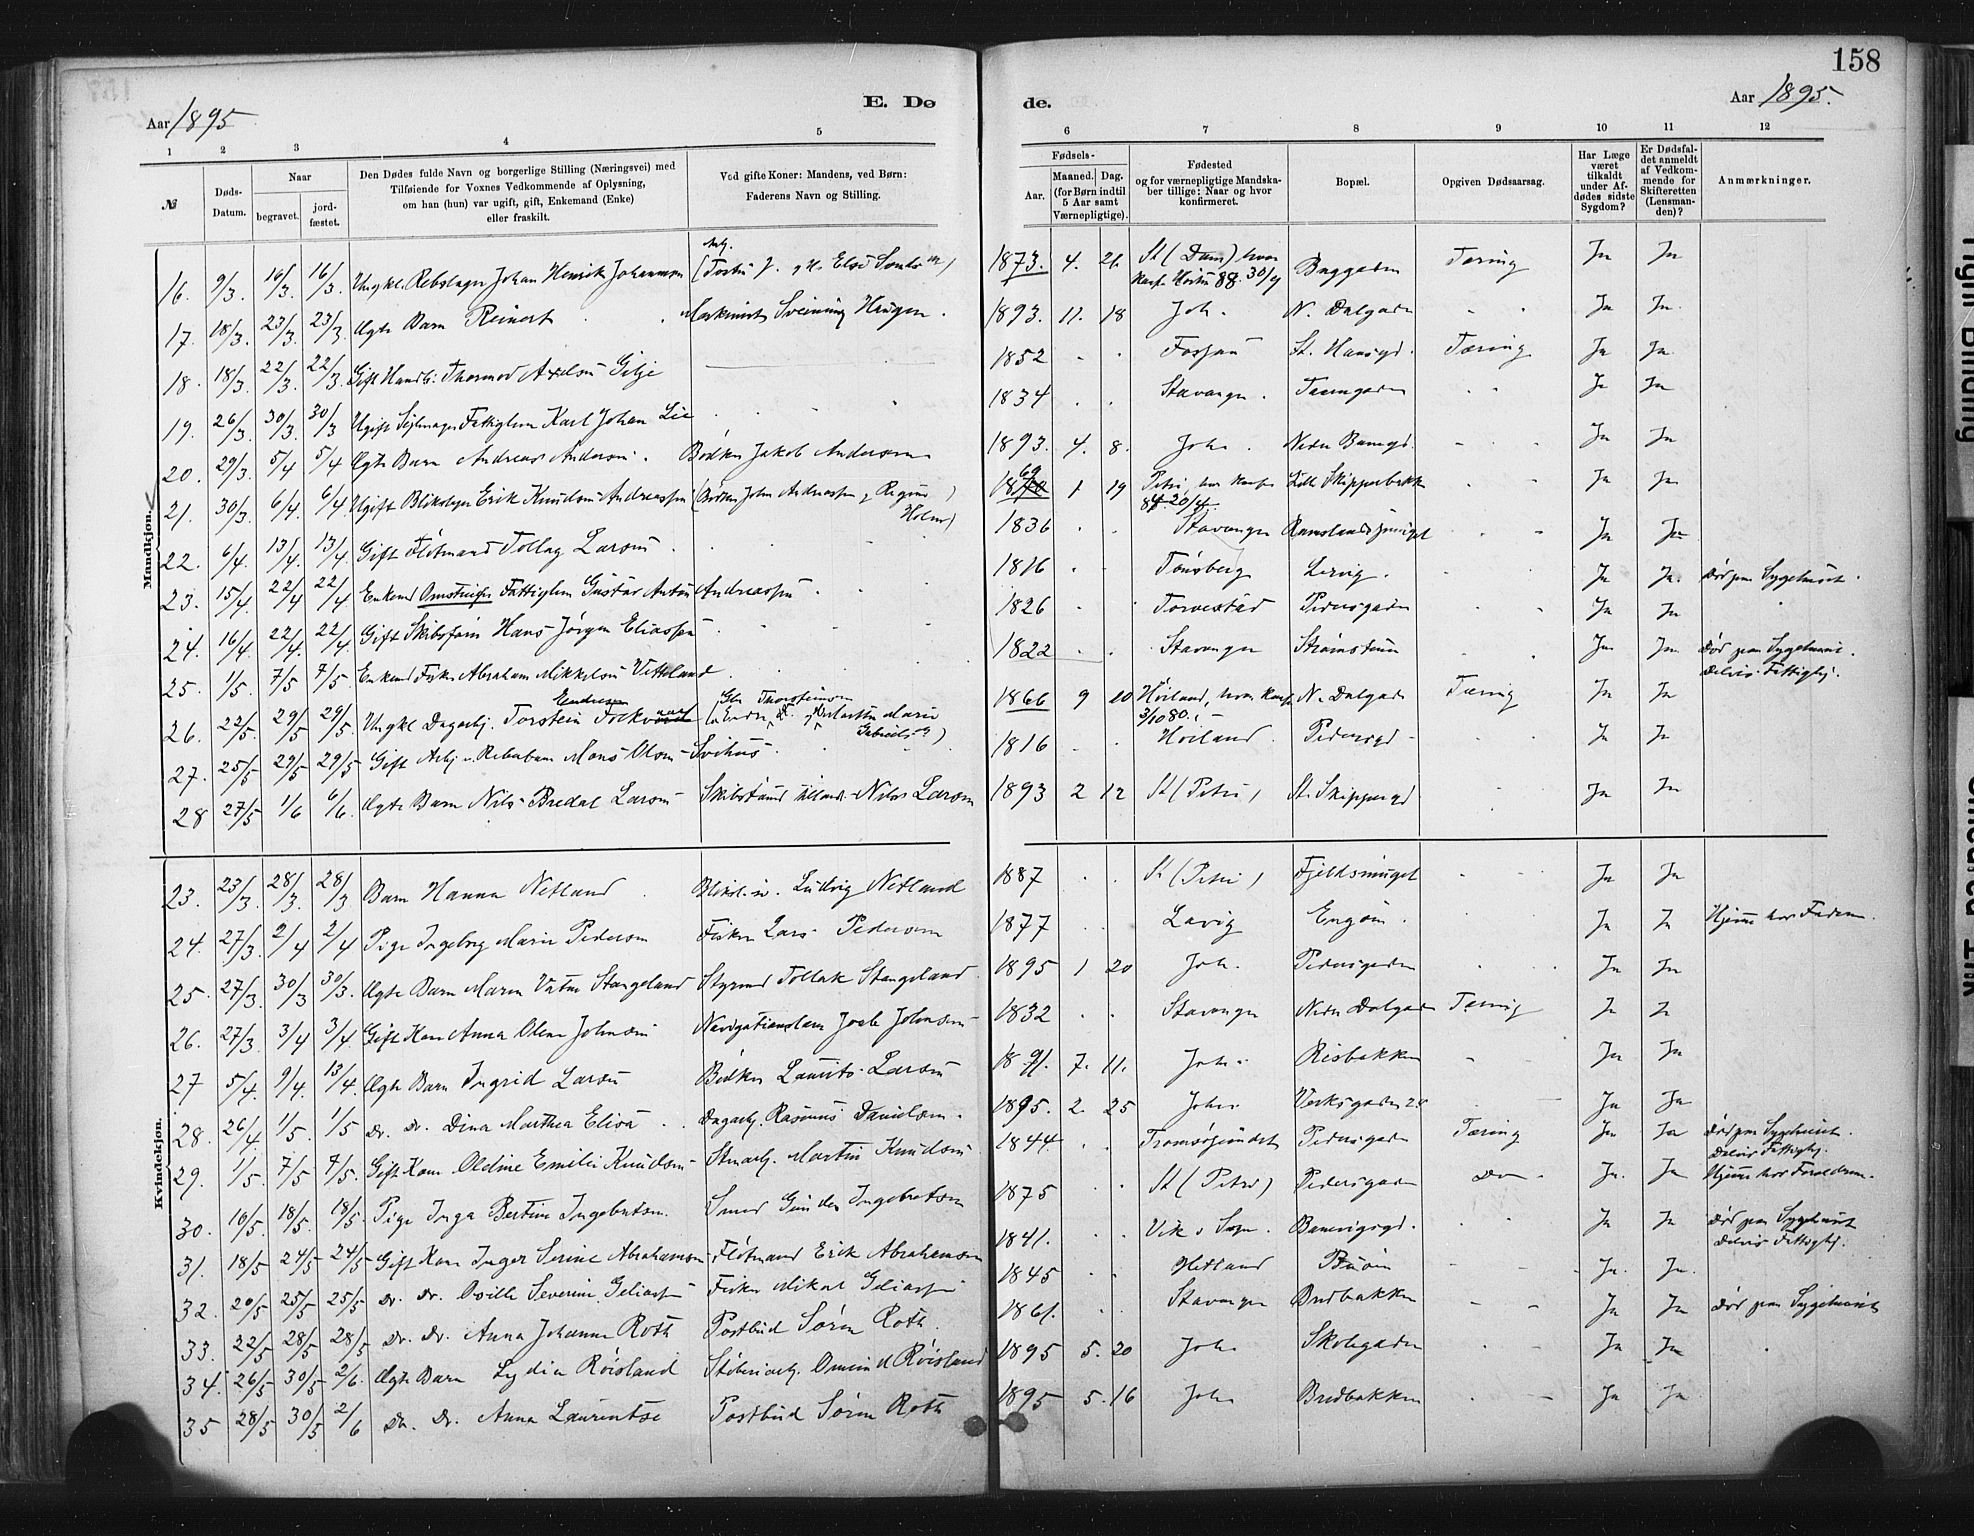 158
Aar 1895 E. Dø de. Aar 1895.
1 2 3 4 5 6 7 8 9 10 11 12
№ Døds-Datum. Naar begravet. jord-fæstet. Den Dødes fulde Navn og borgerlige Stilling (Næringsvei) med Tilføiende for Voxnes Vedkommende af Oplysning, om han (hun) var ugift, gift, Enkemand (Enke) eller fraskilt. Ved gifte Koner: Mandens, ved Børn: Faderens Navn og Stilling. Fødsels- Aar. Maaned. Dag. (for Børn indtil 5 Aar samt Værnepligtige). Fødested og for værnepligtige Mandskaber tillige: Naar og hvor konfirmeret. Bopæl. Opgiven Dødsaarsag. Har Læge været tilkaldt under Afdødes sidste Sygdom? Er Dødsfaldet anmeldt af Vedkommende for Skifteretten (Lensmanden)? Anmærkninger.
Mandkjøn.
16. 9/3. 16/3. 16/3. Ungkl. Rebslager Johan Henrik Johannesen 1873. 4. 26 St (Dom), hvor Baggaden Tæring Ja Ja
17. 18/3. 23/3. 23/3 Ægte Barn Reinert Maskinist Sveinung Haugen. 1893. 11. 18 Joh. N. Dalgaden Ja Ja
18. 18/3. 22/3. 22/3. Gift Handlb: Thormod Axelsen Gilje 1852 Fossan St. Hansgd. Tæring Ja Ja
19. 26/3. 30/3. 30/3 Ugift Sejlmager Fattiglem Karl Johan Lie 1834 Stavanger Taarngaden Ja Ja
20. 29/3 5/4 5/4 Ægte Barn Andreas Andersen. Bødker Jakob Andersen 1893. 4. 8. Joh. Nedre Banegd. Ja Ja
21. 30/3. 6/4. 6/4. Ugift Blikslager Erik Knudsen Andreassen (Bødker John Andreassen, Regine Holm) 1869 1 19 Petri, hvor konf. 84 20/4 Lille Skipperbakke Ja Ja
22. 6/4. 13/4. 13/4 Gift Flötmand Tollag Larsen 1836 Stavanger Ramslandssmuget Ja Ja
23. 15/4. 22/4 22/4 Enkemd Fattiglem Gustav Anton Andreassen 1816 Tønsberg Lervig. Ja Ja. Død paa Sygehuset.
24. 16/4. 22/4. 22/4. Gift Skibsfører Hans Jørgen Eliassen 1826 Torvestad Pedersgaden Ja Ja
25. 1/5. 7/5 7/5. Enkemd Fisker Abraham Mikkelsen Vetteland 1822 Stavanger Strømsteen Ja Ja Død paa Sygehuset. Delvis Fattighj.
26. 22/5. 29/5 29/5. Ungkl Dagarbj. Torstein Endresen 1866 9 10 Høiland, hvor konf. 3/10 80. N. Dalgade Tæring Ja Ja
27. 25/5 29/5 29/5 Gift Arbj. Mons Olsen Svihus 1816 Høiland Pedersgd Ja Ja
28 27/5 1/6 6/6. Ægte Barn Nils Bredal Larsen Nils Larsen 1893 2 12 St (Petri) St. Skippergd Ja Ja
Kvindekjøn.
23. 23/3. 28/3 28/3 Barn Hanna Netland Blikksl. Ludvig Netland 1887 St (Petri) Fjeldsmuget Ja Ja
24. 27/3. 2/4 2/4 Pige Ingeborg Marie Pedersen Fisker Lars Pedersen 1877 Lavig Engøen. Ja Ja Hjemme hos Faderen.
25. 27/3. 30/3 30/3. Ægte Barn Maren Stangeland Styrmd Tollak Stangeland 1895 1 20 Joh. Pedersgaden Ja Ja
26. 27/3. 3/4 3/4 Gift Kone Anna Olene Johnsen Navigationslærer Johnsen 1832 Stavanger Nedre Dalgade Tæring Ja Ja
27 5/4. 9/4 13/4 Ægte Barn Ingrid Larsen Bødker Laurits Larsen 1891. 7. 11. Joh. Risbakken Ja Ja
28. 26/4 1/5. 1/5 Do. Do. Dina Marthea Elisa Dagarbj. Rasmus Danielsen. 1895. 2. 25 Joh. Verksgaden 28 Ja Ja
29. 1/5. 7/5 7/5. Gift Kone Oldine Emilie Knudsen Martin Knudsen 1844. Tromsøsundet Pedersgaden Tæring Ja Ja Død paa Sygehuset. Delvis Fattighj.
30. 10/5. 18/5. 18/5. Pige Inga Bertine Ingebretsen. Smed Gunder Ingebretsen 1875 St (Petri) Pedersgaden Do Ja. Ja Hjemme hos Forældrene.
31. 18/5 24/5 24/5 Gift Kone Inger Serine Abrahamsen Flötmand Erik Abrahamsen 1841. Vik i Sogn. Banevigsgd. Ja Ja Død paa Sygehuset Delvis Fattighj.
32. 20/5 25/5 25/5 Do. Do. Severine Geliassen Fisker Mikal Geliassen 1845 Hetland Buøen Ja. Ja.
33. 22/5 28/5 28/5 Do. Do. Anna Johanna Roth Postbud Søren Roth. 1861. Stavanger Bredbakken Ja Ja Død paa Sygehuset
34. 26/5 30/5 2/6. Ægte Barn Lydia Røisland Støberiarbj. Omund Røisland 1895 5. 20 Joh. Skolegaden Ja Ja
35 28/5 30/5 2/6 Do. Do. Anna Laurentse Postbud Søren Roth 1895 5. 16 Joh. Bredbakken Ja Ja